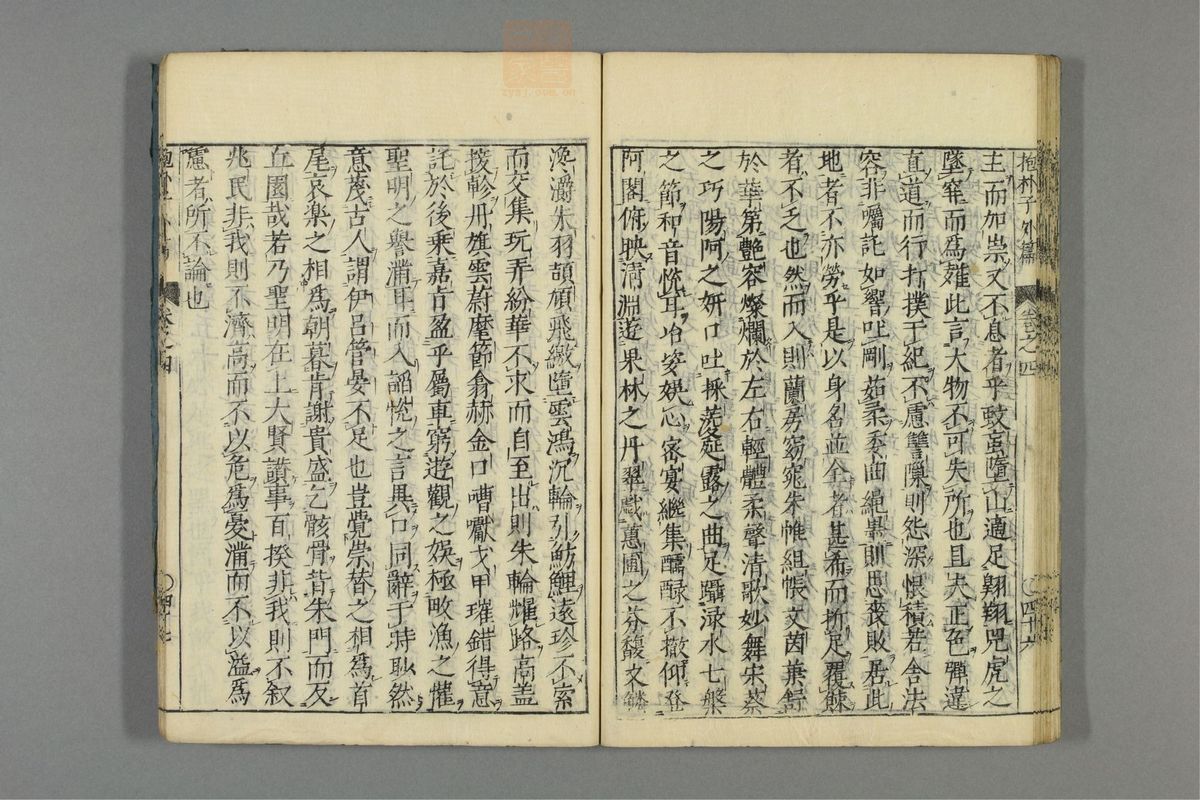 抱朴子外篇 卷之四 〇四十六
主而加祟又不息者乎蚊䖟墮山適足翱翔兕虎之
墜穽而為虀此言大物不可失所也且夫正色彈違
直道而行打撲干紀不慮讐隙則怨深恨積若舍法
容非囑託如響吐剛茹柔委曲繩墨則忠喪敗居此
地者不亦勞乎是以身名並全者甚希而折足覆餗
者不乏也然而入則蘭房窈窕朱帷組帳文茵兼舒
於華第艶容燦爛於左右輕體柔聲清歌妙舞宋蔡
之巧陽阿之妍口吐採菱延露之曲足躡渌水七槃
之節和音悅耳冶姿娛心密宴繼集醽醁不撤仰登
阿閣俯映清淵遊果林之丹翠戲蕙圃之芬馥文鱗
瀺灂朱羽頡頏飛繳墮雲鴻沉輪引魴鯉遠珍不索
而交集玩弄紛華不求而自至出則朱輪耀路高盖
接軫丹旗雲蔚麾節翕赫金口嘈囐戈甲璀錯得意
託於後乗嘉旨盈乎屬車窮遊觀之娛極畋漁之懽
聖明之譽滿耳而入謟悅之言異口同辭于時眇然
意蔑古人謂伊呂管晏不足也豈覺崇替之相為首
尾哀楽之相為朝暮肯謝貴盛乞骸骨背朱門而反
丘園哉若乃聖明在上大賢讃事百揆非我則不叙
兆民非我則不濟高而不以危為憂滿而不以溢為
慮者所不論也
卷之四 〇四十七